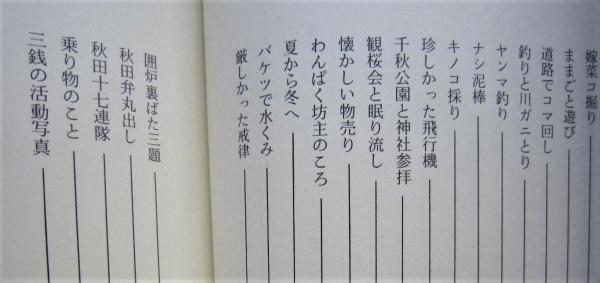 嫁菜コ掘り
ままごと遊び
道路でコマ回し
釣りと川ガニとり
ヤンマ釣り
ナシ泥棒
キノコ採り
珍しかった飛行機
千秋公園と神社参拝
観桜会と眠り流し
懐かしい物売り
わんぱく坊主のころ
夏から冬へ
バケツで水くみ
厳しかった戒律
囲炉裏ばた三題
秋田弁丸出し
秋田十七連隊
乗り物のこと
三銭の活動写真